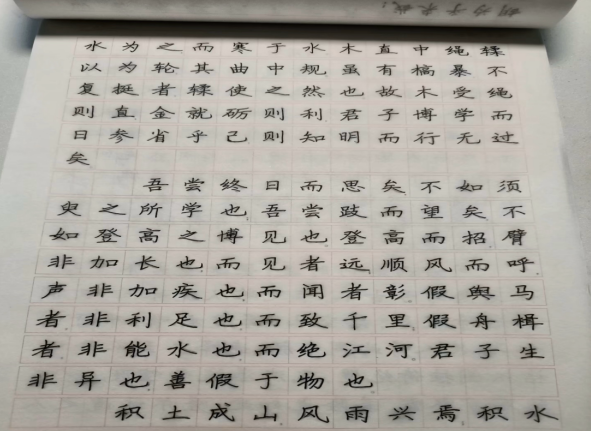 水为之而寒于水木直中绳輮
以为轮其曲中规虽有槁暴不
复挺者輮使之然也故木受绳
则直金就砺则利君子博学而
日参省乎己则知明而行无过
矣
吾尝终日而思矣不如须
臾之所学也吾尝跂而望矣不
如登高之博见也登高而招臂
非加长也而见者远顺风而呼
声非加疾也而闻者彰假舆马
者非利足也而致千里假舟楫
者非能水也而绝江河君子生
非异也善假于物也
积土成山风雨兴焉积水